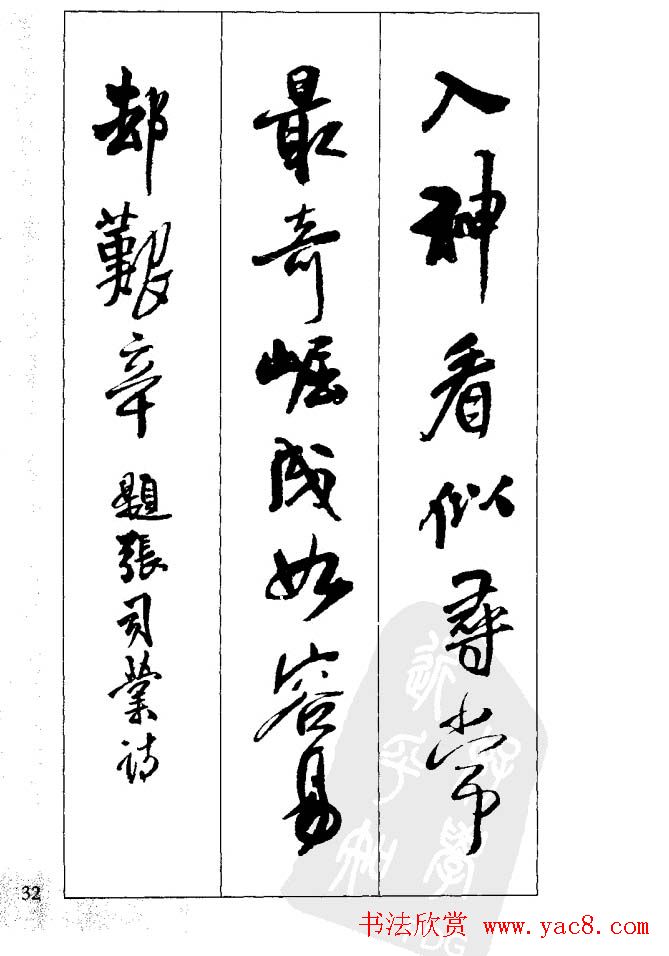 入神看似尋常
最奇崛成如容易
却艱辛 題張司業詩
32
书法欣赏 www.yac8.com